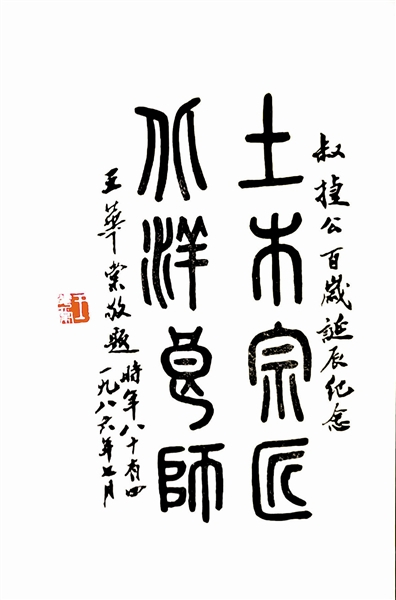 叔捷公百歲誕辰纪念
土木宗匠
北洋良師
王華棠敬題
時年八十有四
一九八六年七月